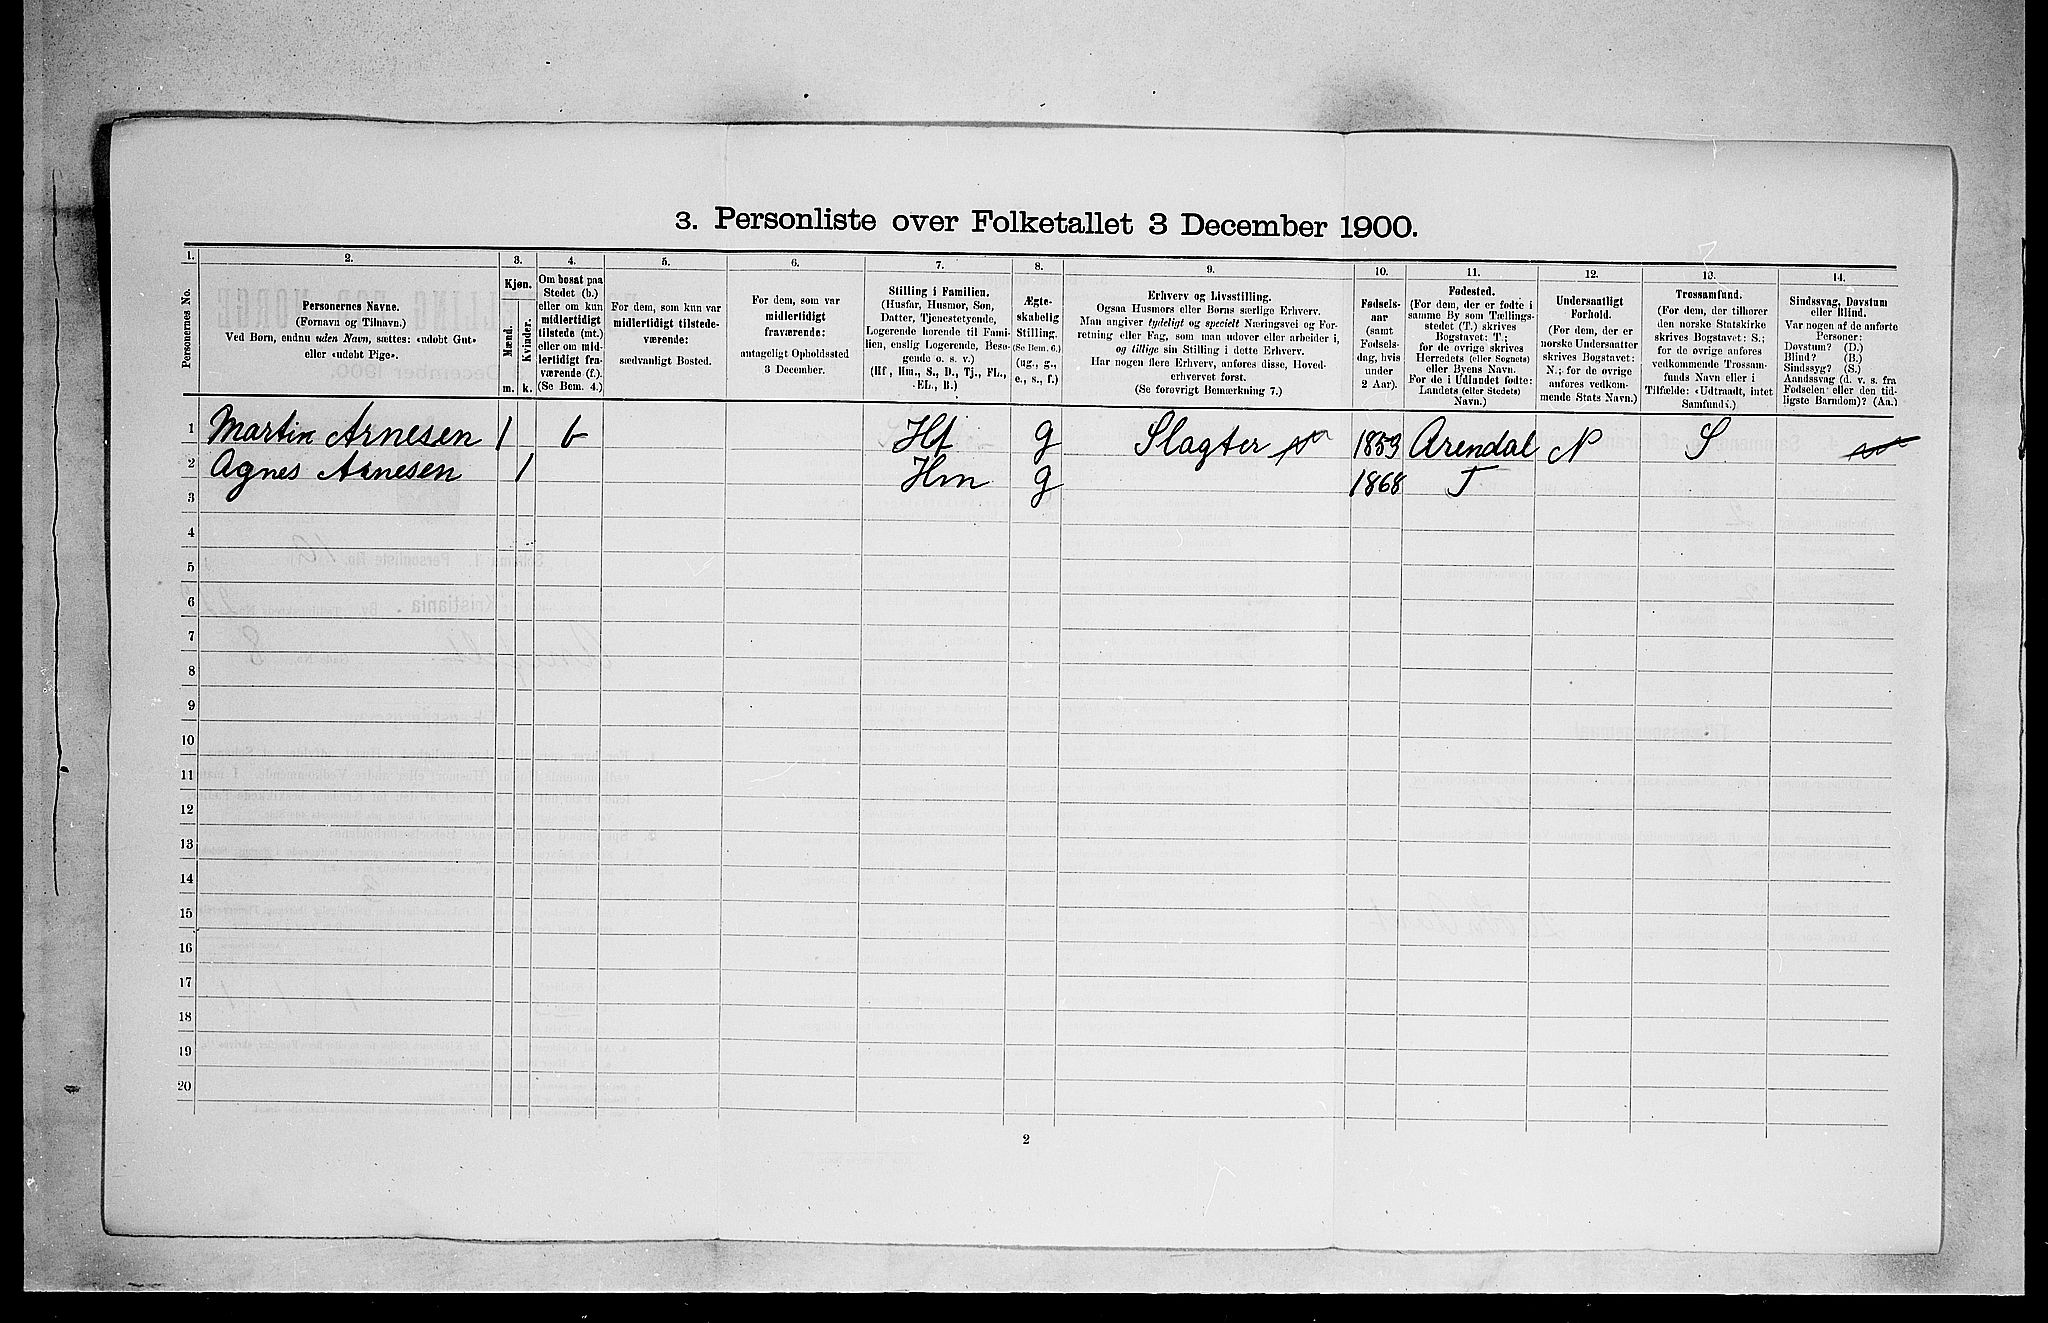 3. Personliste over Folketallet 3 December 1900.
1. 2. 3. 4. 5. 6. 7. 8. 9. 10. 11. 12. 13. 14.
Personernes No.
Personernes Navne.
(Fornavn og Tilnavn.)
Ved Børn, endnu uden Navn, sættes: «udøbt Gut»
eller «udøbt Pige».
Kjøn.
Mænd.
Kvinder.
m. k.
Om bosat paa
Stedet (b.)
eller om kun
midlertidigt
tilstede (mt.)
eller om mid-
lertidigt fra-
værende (f.)
(Se Bem. 4.)
For dem, som kun var
midlertidigt tilstede-
værende:
sædvanligt Bosted.
For dem, som var
midlertidigt
fraværende:
antageligt Opholdssted
3 December.
Stilling i Familien.
(Husfar, Husmor, Søn,
Datter, Tjenestetyende,
Logerende hørende til Fami-
lien, enslig Logerende, Besø-
gende o. s. v.)
(Hf, Hm., S., D., Tj., FL.,
EL., B.)
Ægte-
skabelig
Stilling.
(Se Bem. 6.)
(ug., g.,
e., s., f.)
Erhverv og Livsstilling.
Ogsaa Husmors eller Børns særlige Erhverv.
Man angiver tydeligt og specielt Næringsvei og For-
retning eller Fag, som man udøver eller arbeider i,
og tillige sin Stilling i dette Erhverv.
Har nogen flere Erhverv, anføres disse, Hoved-
erhvervet først.
(Se forøvrigt Bemærkning 7.)
Fødsels-
aar
(samt
Fødsels-
dag, hvis
under
2 Aar).
Fødested.
(For dem, der er fødte i
samme By som Tællings-
stedet (T.) skrives
Bogstavet: T.;
for de øvrige skrives
Herredets (eller Sognets)
eller Byens Navn.
For de i Udlandet fødte:
Landets (eller Stedets)
Navn.)
Undersaatligt
Forhold.
(For dem, der er
norske Undersaatter
skrives Bogstavet:
N.; for de øvrige
anføres vedkom-
mende Stats Navn.)
Trossamfund.
(For dem, der tilhører
den norske Statskirke
skrives Bogstavet: S.;
for de øvrige anføres
vedkommende Trossam-
funds Navn eller i
Tilfælde: «Udtraadt, intet
Samfund».)
Sindssvag, Døvstum
eller Blind.
Var nogen af de anførte
Personer:
Døvstum? (D.)
Blind? (B.)
Sindssyg? (S.)
Aandssvag (d. v. s. fra
Fødselen eller den tid-
ligste Barndom)? (Aa.)
1 Martin Arnesen 1 b Hf g Slagter 1859 Arendal N S
2 Agnes Arnesen 1 Hm g 1868 T
3
4
5
6
7
8
9
10
11
12
13
14
15
16
17
18
19
20
2